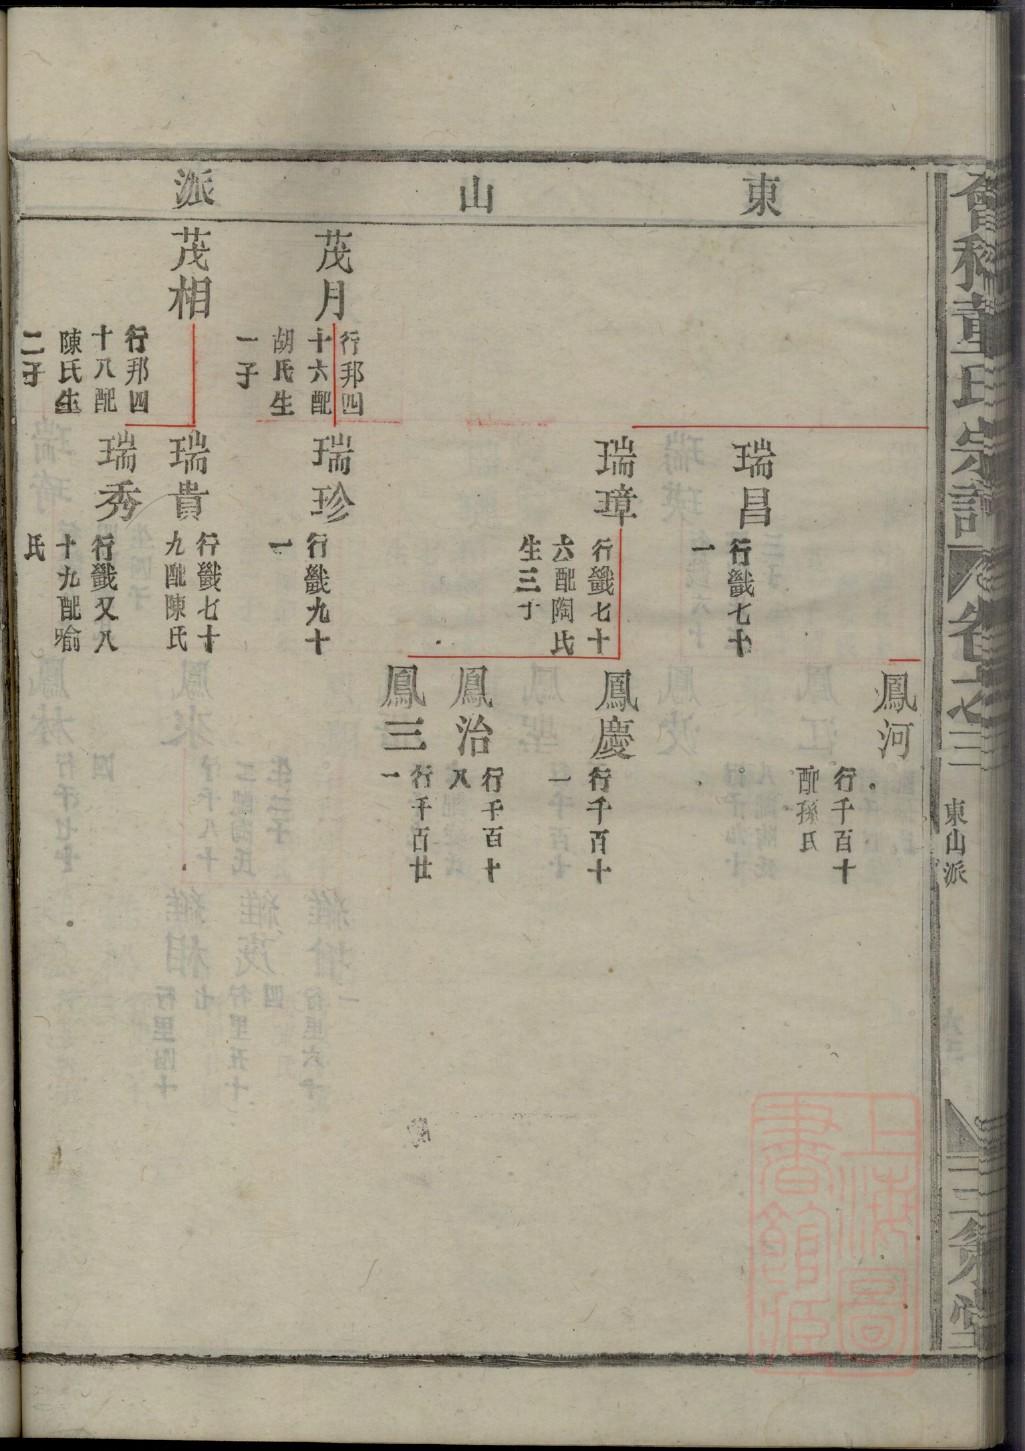 東山派
茂月
行邦四
十六配
胡氏生
一子
茂相
行邦四
十八配
陳氏生
二子
瑞昌
行巤七十
一
瑞璋
行巤七十
六配陶氏
生三子
瑞珍
行巤九十
一
瑞貴
行巤七十
九配陳氏
瑞秀
行巤又八
十九配喻
氏
鳳河
行千百十
配孫氏
鳳慶
行千百十
一
鳳治
行千百十
八
鳳三
行千百廿
一
董氏宗譜
東山派
上海圖
書館藏